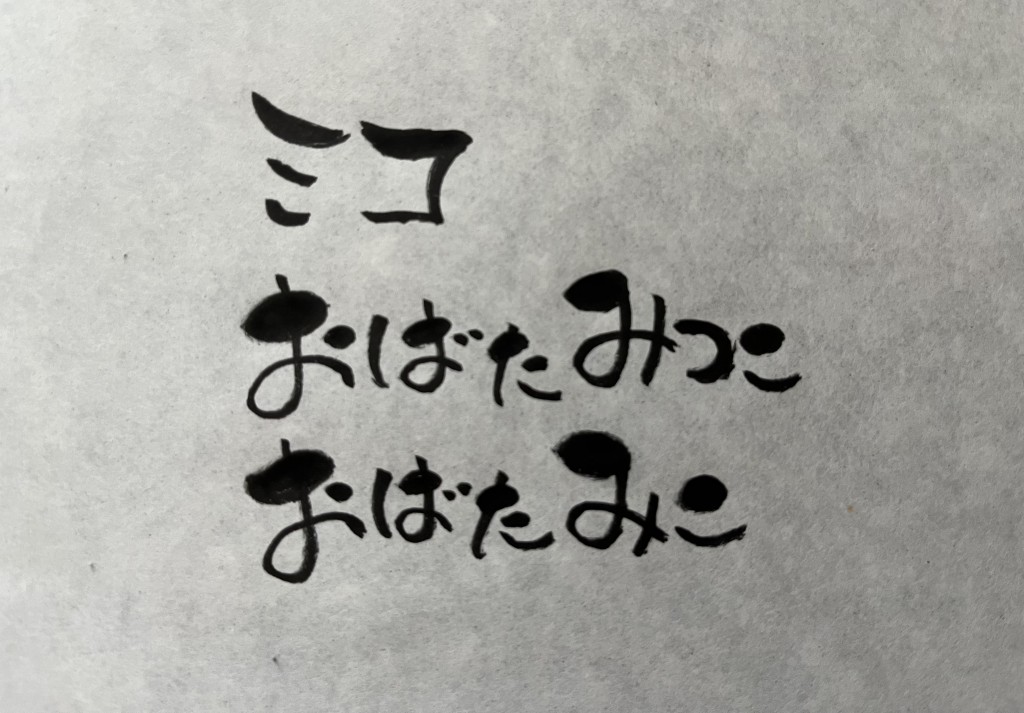 ミコ
おばたみつこ
おばたみこ